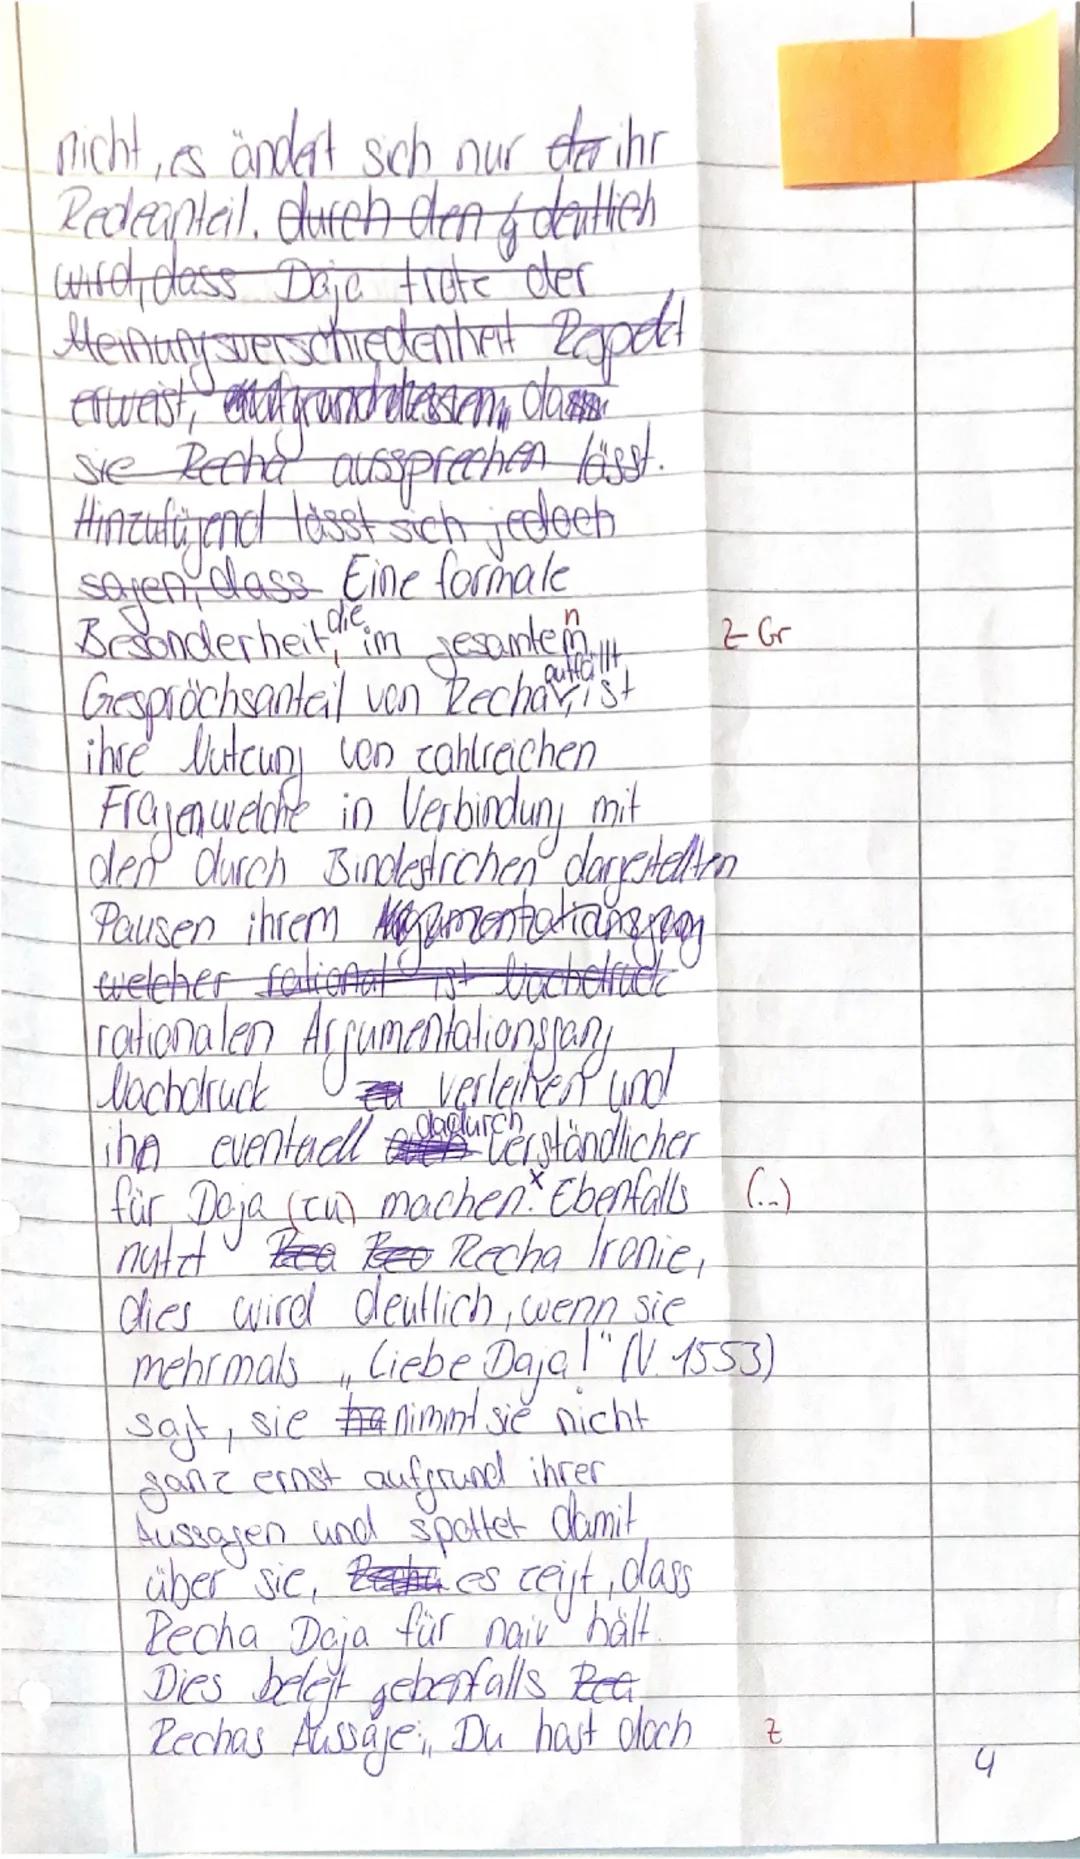 nicht, es ändert sich nur der ihr
Redeanteil. durch den deutlich
wird, dass Daja trotz der
Meinungsverschiedenheit Respekt
erweist, aufgrunddessen, dass
sie Recha aussprechen lässt.
Hinzufügend lässt sich jedoch
sagen, dass Eine formale
Besonderheit, die im gesamtem n Z Gr
Gesprächsanteil von Recha auffällt, ist
ihre Nutzung von zahlreichen
Fragen welche in Verbindung mit
den durch Bindestrichen dargestellten
Pausen ihrem Argumentationsgang
welcher rational ist Nachdruck
rationalen Argumentationsgang
Nachdruck zu verleihen und
ihn eventuell dadurch verständlicher
für Daja (zu) machen.x Ebenfalls (...)
nutzt Recha Ironie,
dies wird deutlich, wenn sie
mehrmals „Liebe Daja!" (V. 1553)
sagt, sie ha nimmt sie nicht
ganz ernst aufgrund ihrer
Aussagen und spottet damit
über sie, Recha es zeigt, dass
Recha Daja für naiv hält.
Dies belegt gebenfalls
Rechas Aussage: „Du hast doch Z
4